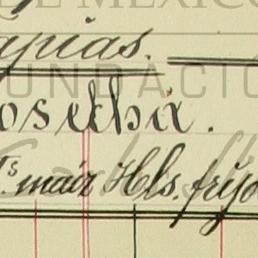 DE MEXICO
apias.
FUNDACIÓ
osetha.
Ts. maiz Hls. frijo